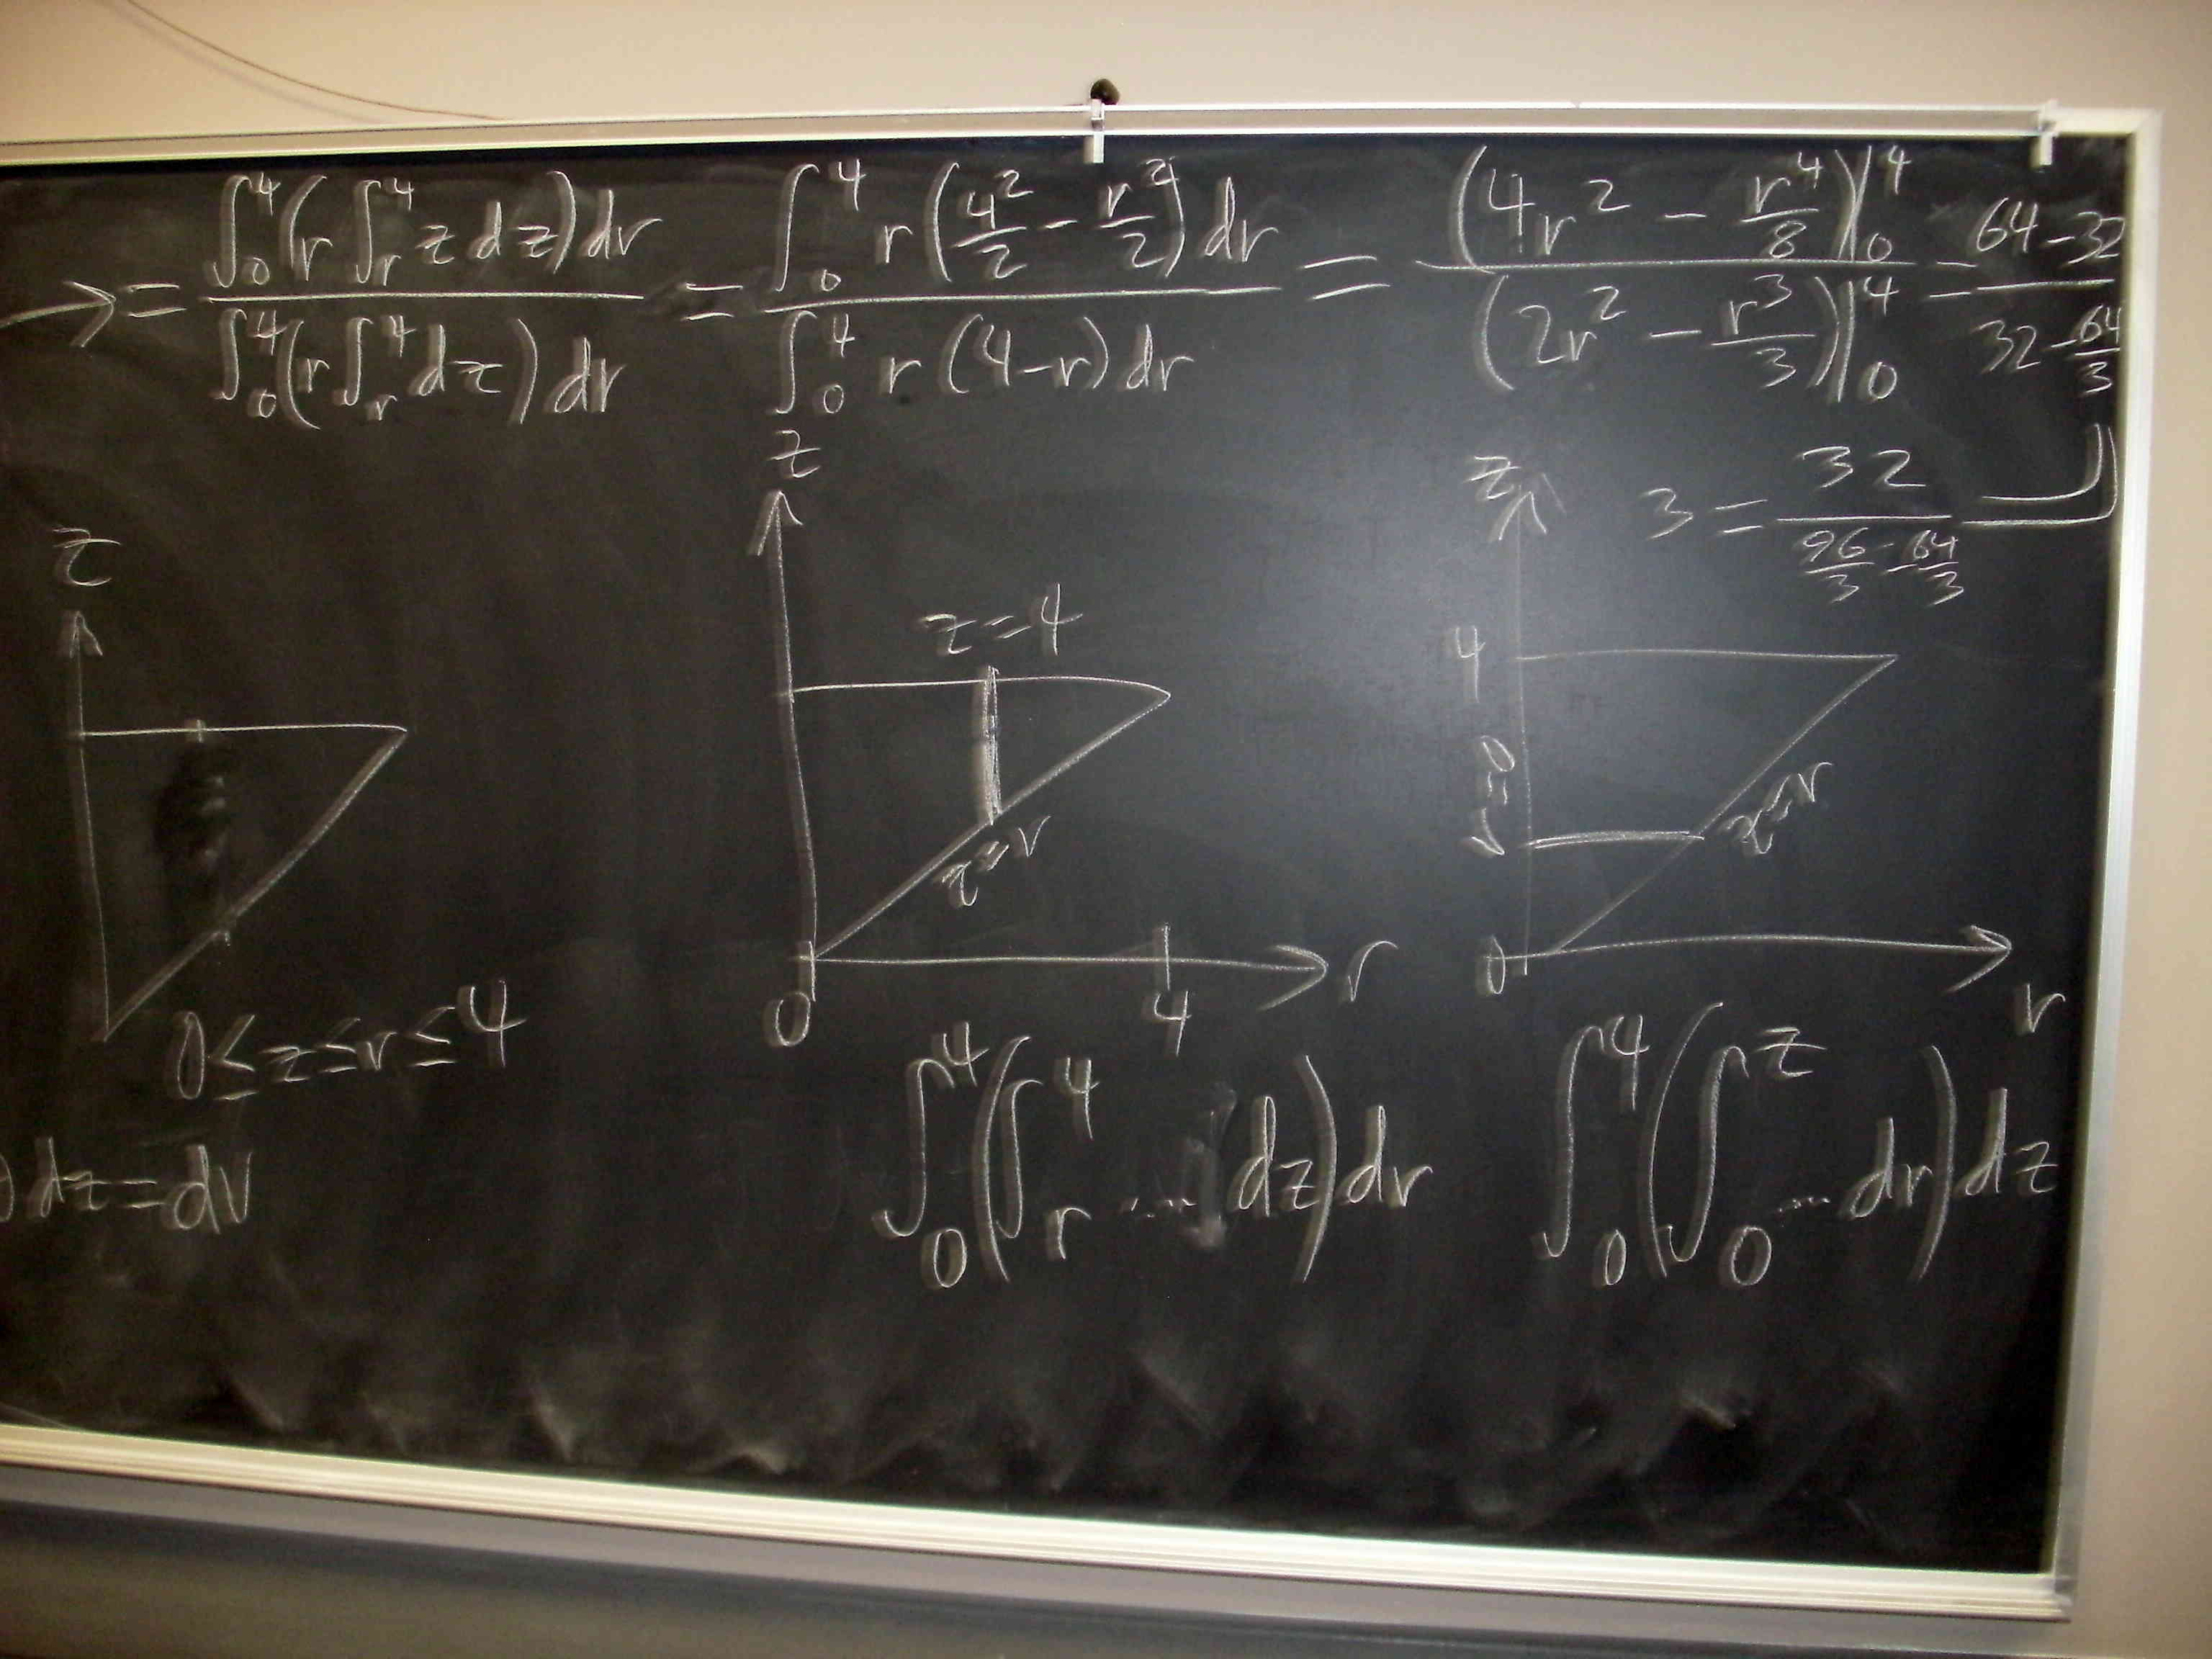 → = ∫₀⁴(r ∫ᵣ⁴ z dz) dr / ∫₀⁴(r ∫ᵣ⁴ dz) dr = ∫₀⁴ r (4²/2 - r²/2) dr / ∫₀⁴ r (4-r) dr = (4r² - r⁴/8)|₀⁴ / (2r² - r³/3)|₀⁴ = 64-32 / 32-64/3
3 = 32 / 96/3 - 64/3 =
z
z=4
z=r
0
4
r
z
4
r=0
z=r
0
r
z
0≤z≤r≤4
) dz = dV
∫₀⁴(∫ᵣ⁴ ... dz) dr
∫₀⁴(∫₀ᶻ ... dr) dz